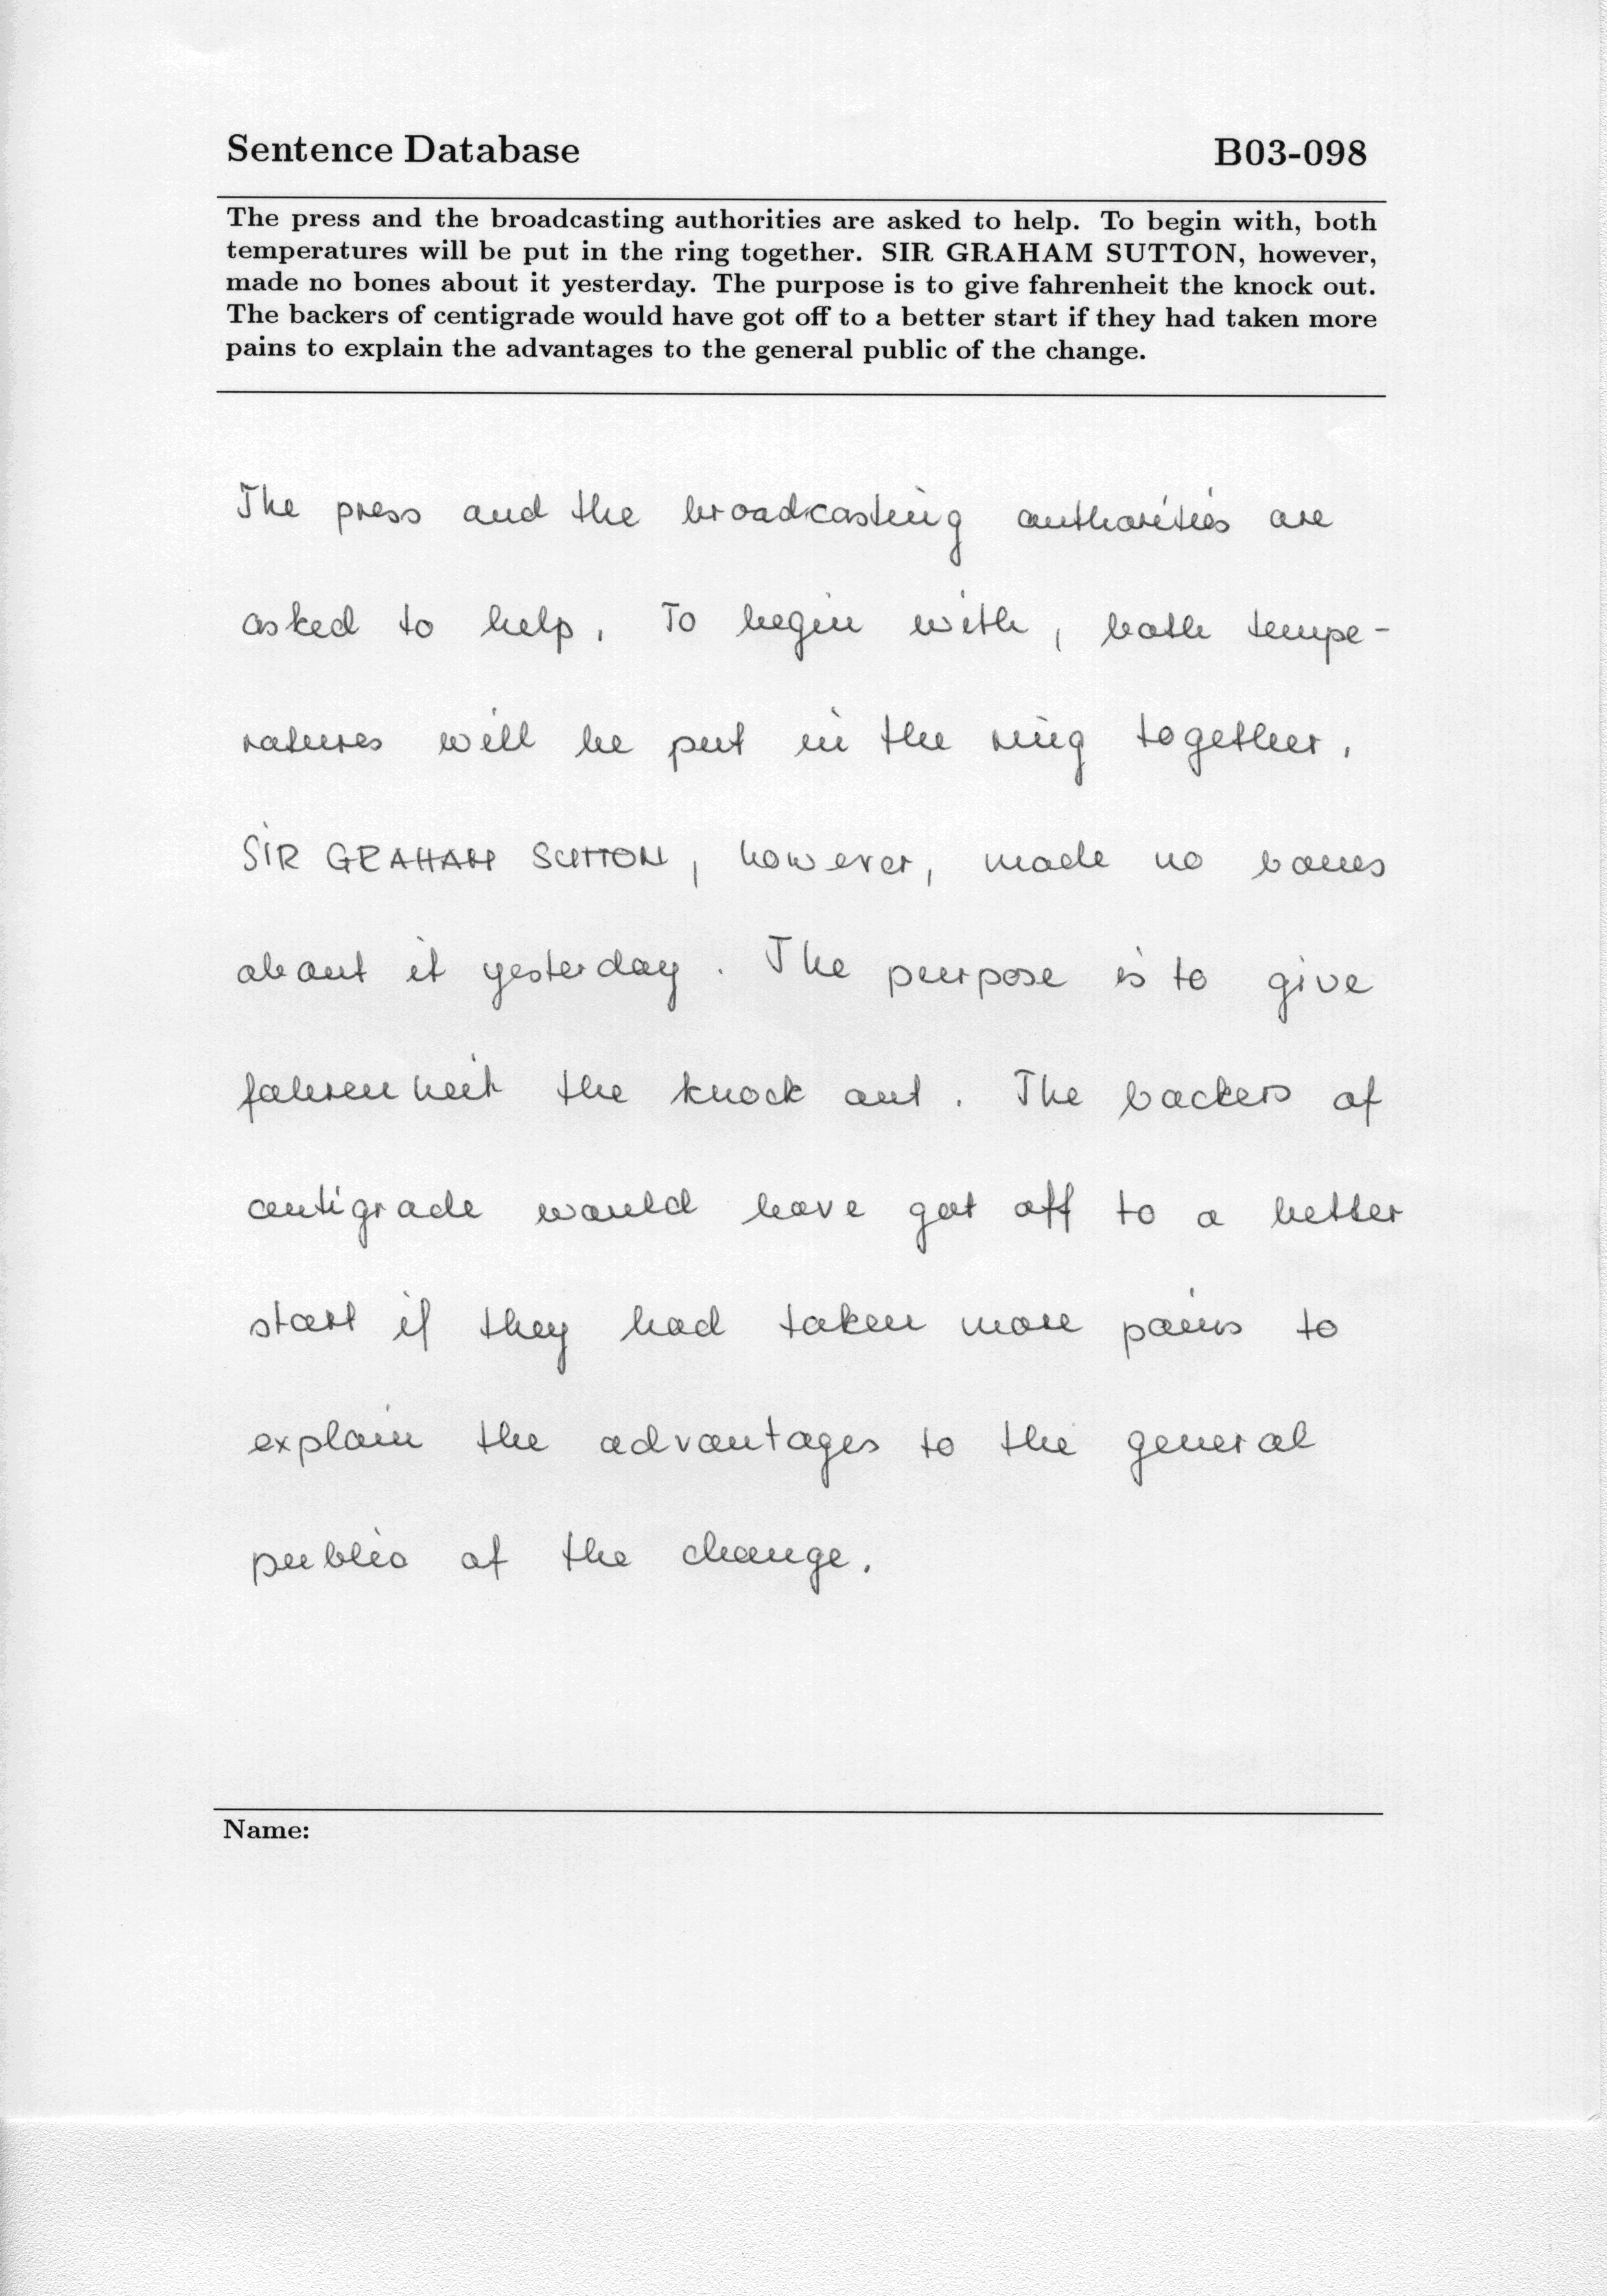 Sentence Database B03-098
The press and the broadcasting authorities are asked to help. To begin with, both
temperatures will be put in the ring together. SIR GRAHAM SUTTON, however,
made no bones about it yesterday. The purpose is to give fahrenheit the knock out.
The backers of centigrade would have got off to a better start if they had taken more
pains to explain the advantages to the general public of the change.
The press and the broadcasting authorities are
asked to help. To begin with, both tempe-
ratures will be put in the ring together.
SIR GRAHAM SUTTON, however, made no bones
about it yesterday. The purpose is to give
fahrenheit the knock out. The backers of
centigrade would have got off to a better
start if they had taken more pains to
explain the advantages to the general
public of the change.
Name: